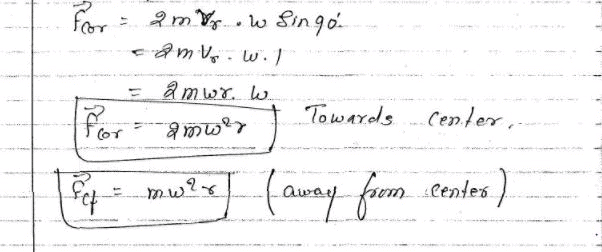 F⃗cor = 2m Vr . w Sin90°
= 2m Vr . w . 1
= 2mwr . w
F⃗cor = 2mw²r Towards center.
F⃗cf = mw²r (away from center)